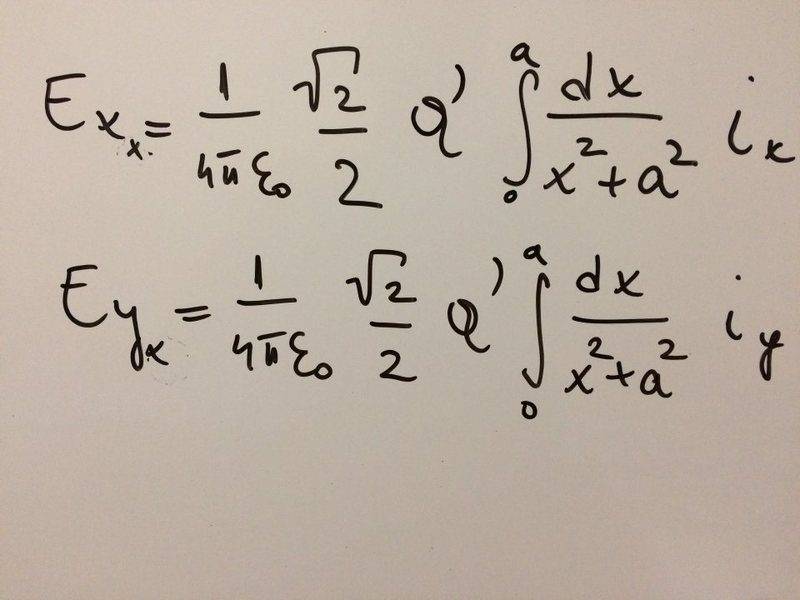 E_{x_x} = \frac{1}{4\pi\varepsilon_0} \frac{\sqrt{2}}{2} Q' \int_0^a \frac{dx}{x^2+a^2} i_x
E_{y_x} = \frac{1}{4\pi\varepsilon_0} \frac{\sqrt{2}}{2} Q' \int_0^a \frac{dx}{x^2+a^2} i_y